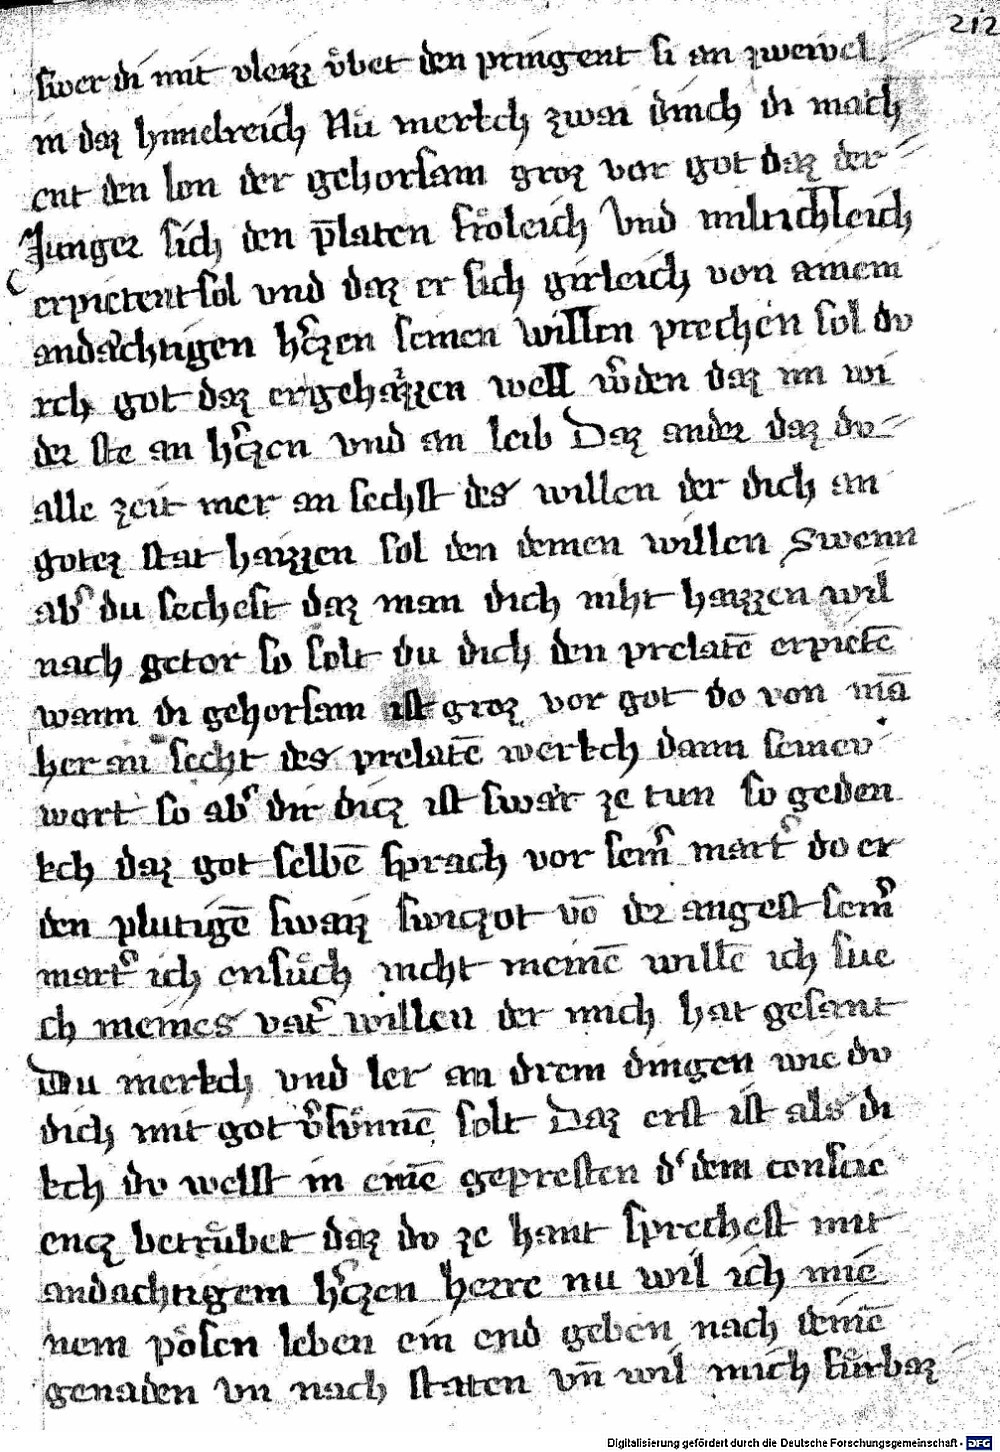 212
swer di mit vleizz vͤbet den pringent si an zweivel
in daz himelreich Nu merkch zwai dinch di mach
ent den lon der gehorsam groz vor got daz der
Junger sich den p̄laten froͤleich Vnd milichleich
erpieten sol vnd daz er sich girleich von ainem
andaͤchtigen hˢczen seinen willen prechen sol du
rch got daz er igehaizzen well wˢden daz im wi
der ste an hˢczen vnd an leib Daz ander daz du
alle zeit mer an sechst des willen der dich an
gotez stat haizzen sol den deinen willen Swenn
abˢ du sechest daz man dich niht haizzen wil
nach getor so solt du dich den prelatē erpietē
wann di gehorsam ist groz vor got do von mā
her an secht des prelatē werkch dann seinev
wort so abˢ dir dicz ist swaͤr ze tun so geden
kch daz got selbē sprach vor seinˢ martˢ do er
den plutigē swaiz swiczot vō der angest seinˢ
martˢ ich ensuͤch nicht meinē willē ich sue
ch meines vatˢ willen der mich hat gesant
Du merkch vnd ler an drein dingen wie du
dich mit got vˢsuͤnnē solt Daz erst ist als di
kch du velst in einē gepresten dˢ dein conscie
encz betruͤbet daz du ze hant sprechest mit
andachtigem hˢczen herre nu wil ich mie
nem poͤsen leben ein end geben nach deinē
genaden vn nach staten vn̄ wil mich fuͤrbaz
Digitalisierung gefördert durch die Deutsche Forschungsgemeinschaft - DFG